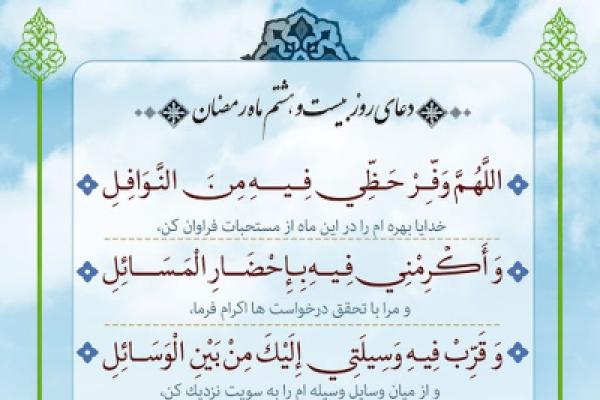 دعای روز بیست و هشتم ماه رمضان
اللَّهُمَّ وَفِّرْ حَظِّي فِيهِ مِنَ النَّوَافِلِ
خدایا بهره ام را در این ماه از مستحبات فراوان کن،
وَ أَكْرِمْنِي فِيهِ بِإِحْضَارِ الْمَسَائِلِ
و مرا با تحقق درخواست ها اکرام فرما،
وَ قَرِّبْ فِيهِ وَسِيلَتِي إِلَيْكَ مِنْ بَيْنِ الْوَسَائِلِ
و از میان وسایل وسیله ام را به سویت نزدیک کن،